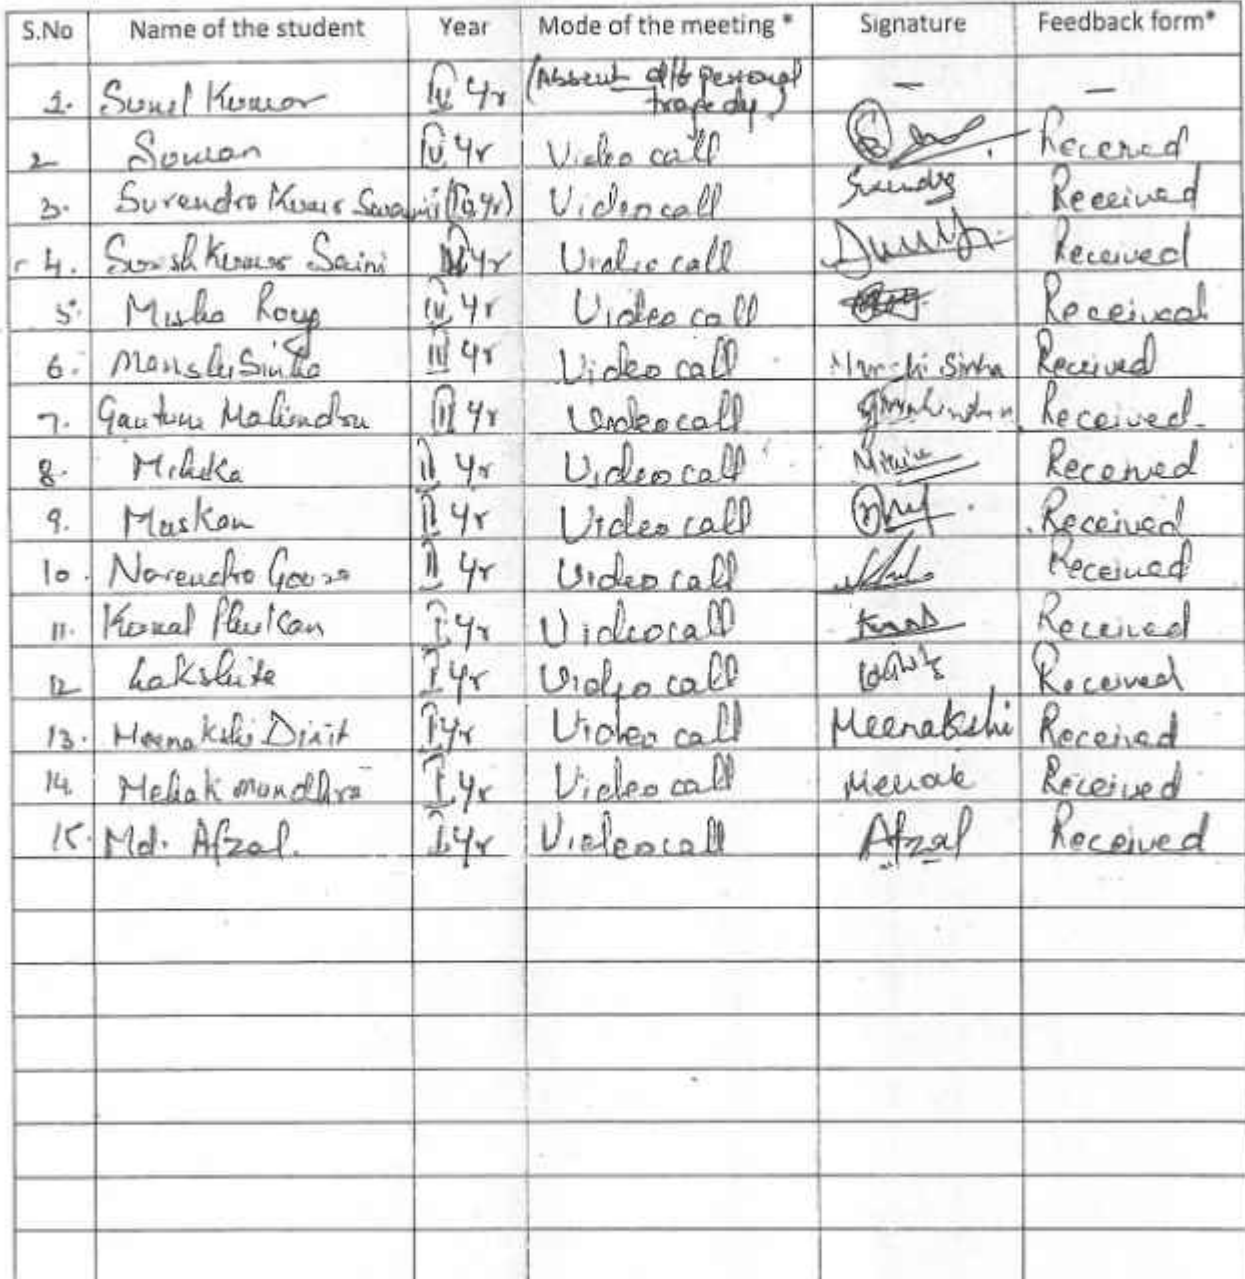 S.No Name of the student Year Mode of the meeting * Signature Feedback form*
1. Sunil Kumar IV Yr (Absent d/to personal tragedy) — —
2 Suman IV Yr Video call Received
3. Surendra Kumar Swami (IV Yr) Video call Received
4. Suresh Kumar Saini Yr Video call Received
5. Misha Roy IV Yr Video call Received
6. Manshi Sinha III Yr Video call Manshi Sinha Received
7. Gautam Mahindra Yr Video call Received.
8. II Yr Video call Received
9. Muskan II Yr Video call Received
10. Narendra II Yr Video call Received
11. Komal Phulkan I Yr Video call Received
12 Lakshita I Yr Video call Received
13. Meenakshi Dixit I Yr Video call Meenakshi Received
14. Mehak mundhra I Yr Video call Mehak Received
15. Md. Afzal. I Yr Video call Afzal Received